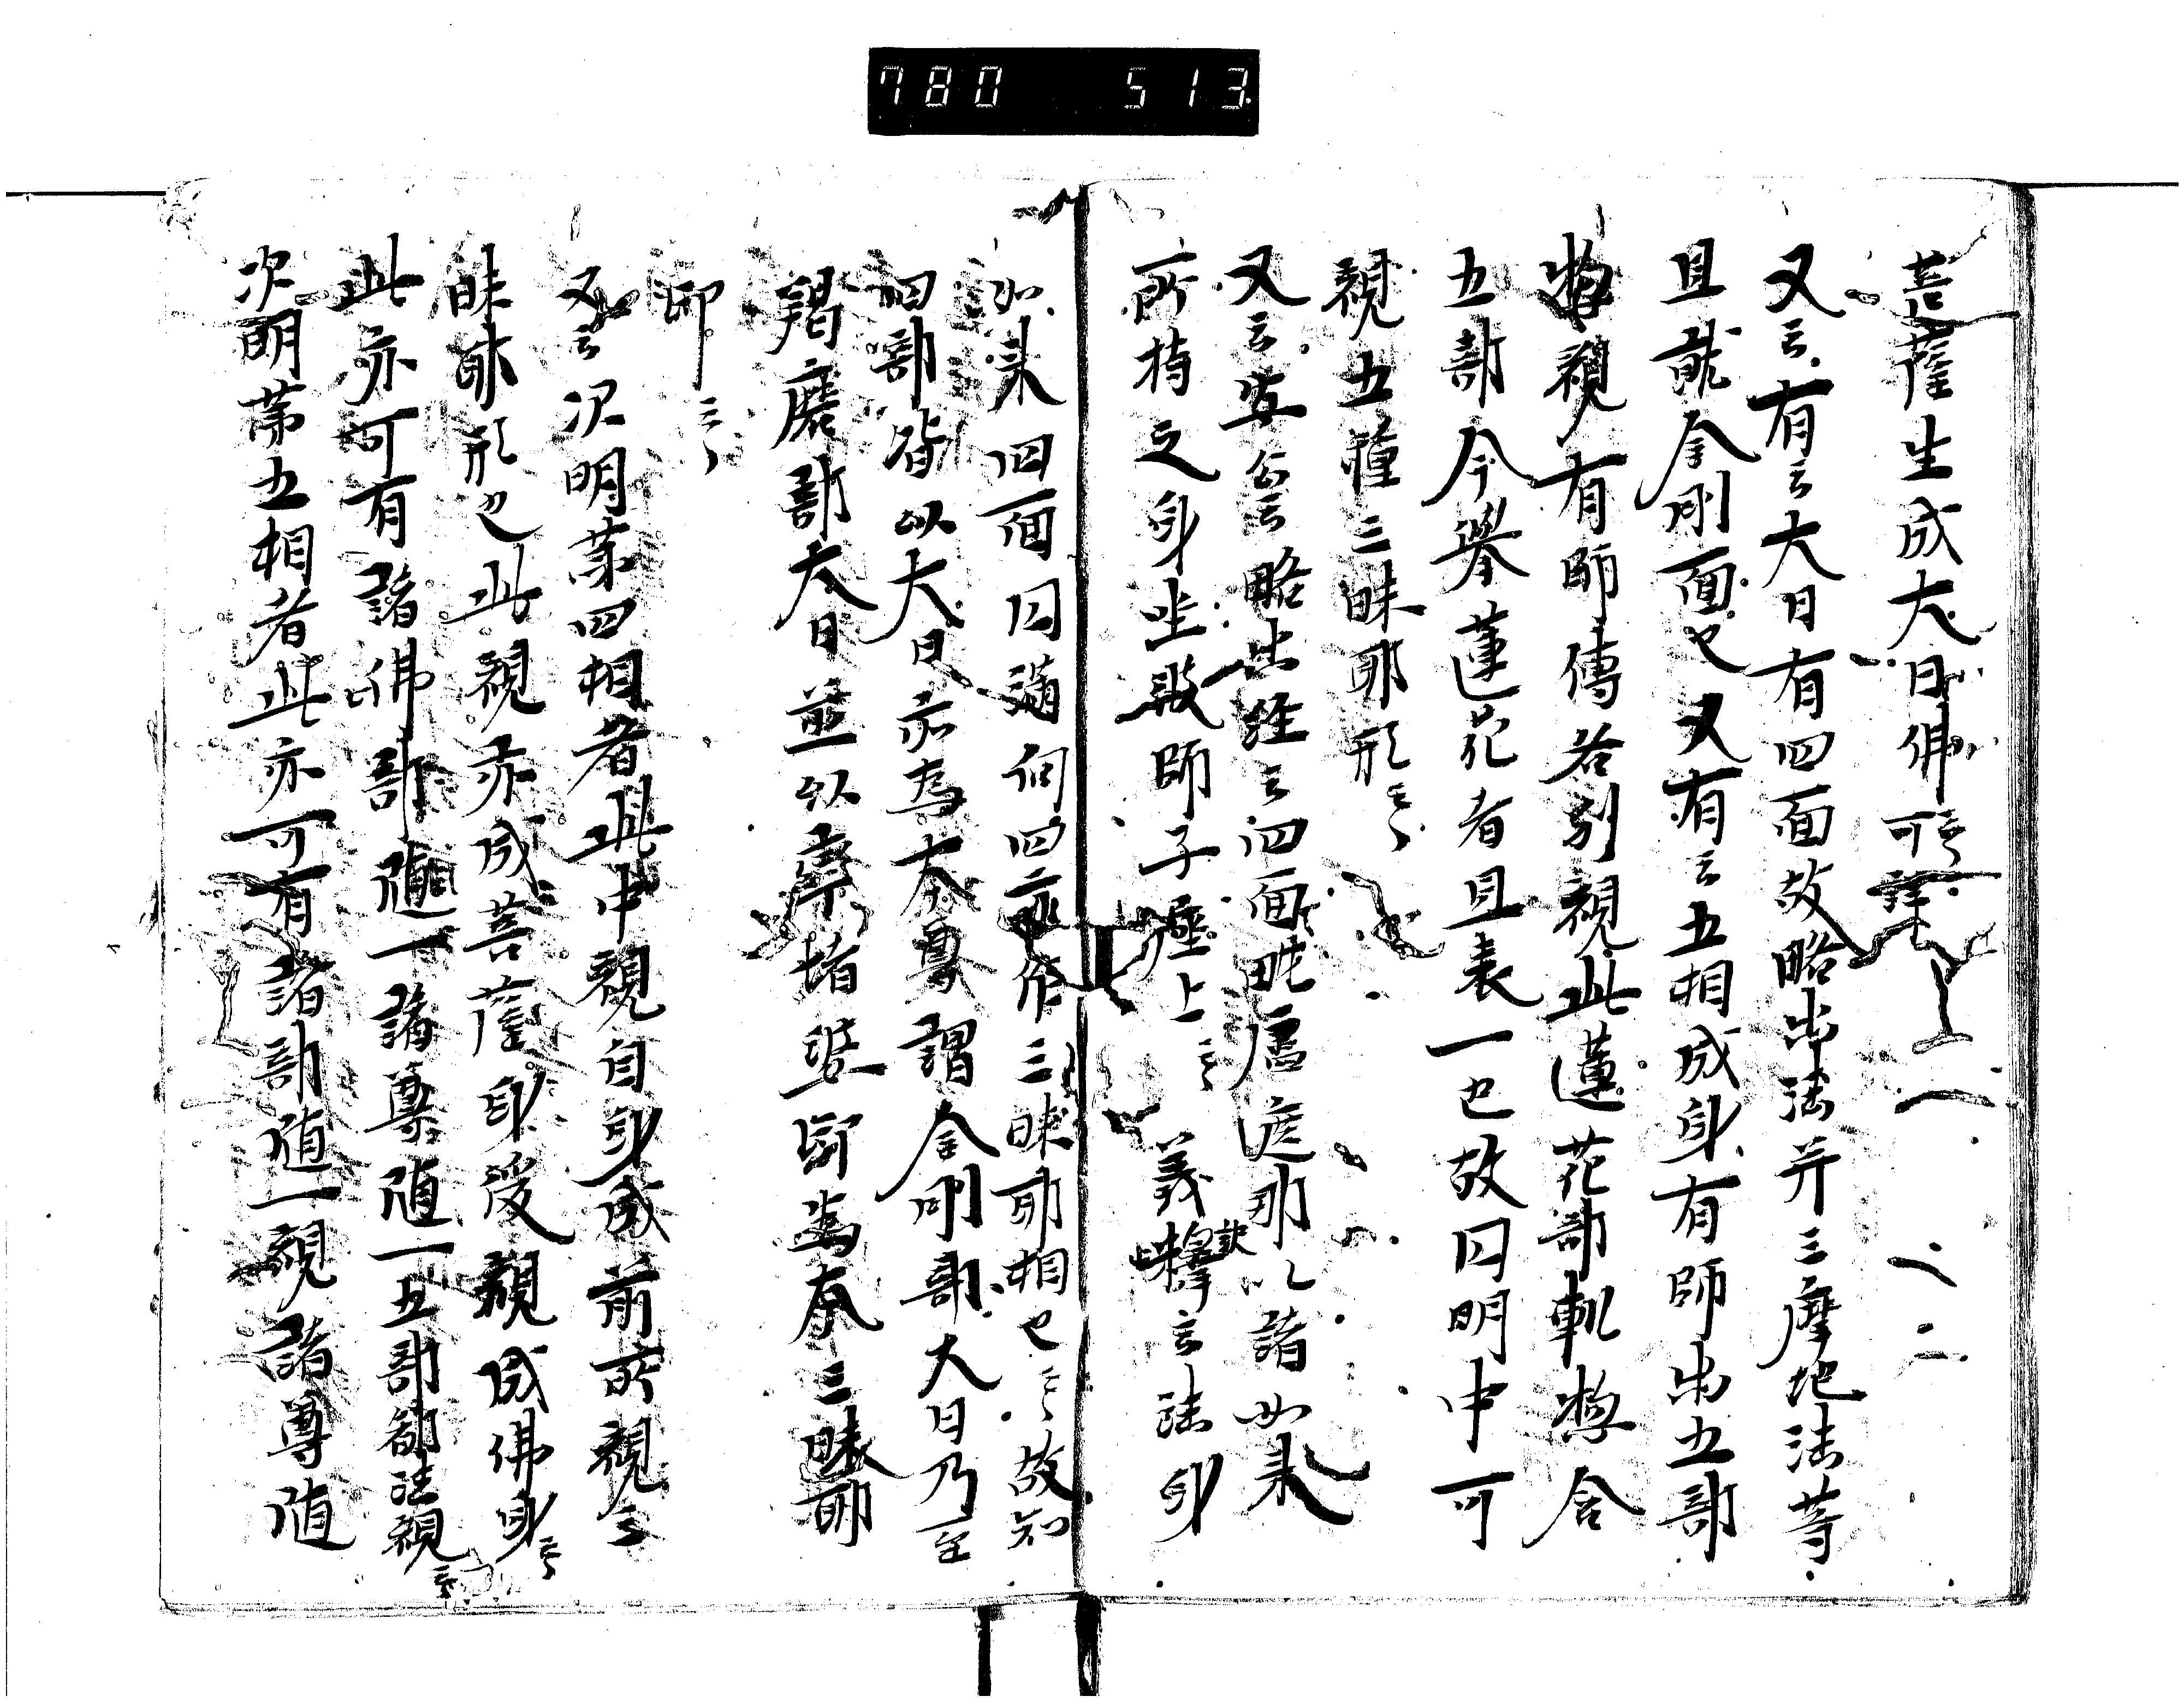 780 513
菩薩生成大日佛可云詳
又云有云大日有四面故略出法并三摩地法等
且就金剛面也又有云五相成身有師出五部
惣觀有師傳各別觀此蓮花部軌惣含
五部今舉蓮花者且表一也故因明中可
觀五種三昧耶形云々
又云安公云略出經云四面毗盧遮那以諸如來
所持之身坐彼師子座上云々義釋云法身
如來四面円滿向四方作三昧耶相也云々故知
四部皆以大日而為本尊謂金剛部大日乃至
羯磨部大日並以率堵婆印為本三昧耶
印云々
又云次明第四相者此中觀自身成前所觀三
昧耶形也此觀亦成菩薩身後觀成佛身云々
此亦可有諸佛部隨一諸尊隨一五部都法觀云々
次明第五相者此亦可有諸部隨一觀諸尊隨